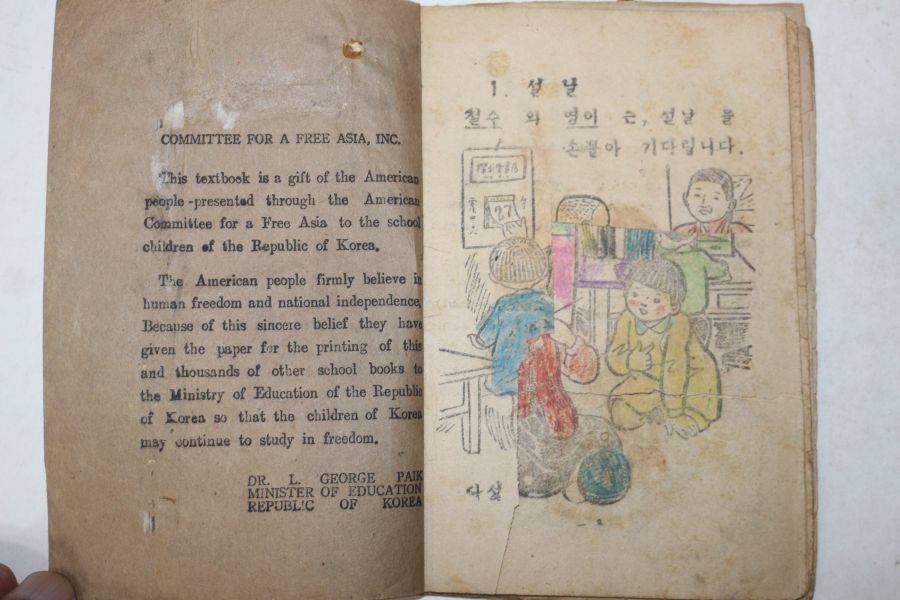 COMMITTEE FOR A FREE ASIA, INC.
This textbook is a gift of the American
people-presented through the American
Committee for a Free Asia to the school
children of the Republic of Korea.
The American people firmly believe in
human freedom and national independence.
Because of this sincere belief they have
given the paper for the printing of this
and thousands of other school books to
the Ministry of Education of the Republic
of Korea so that the children of Korea
may continue to study in freedom.
DR. L. GEORGE PAIK
MINISTER OF EDUCATION
REPUBLIC OF KOREA
1. 설날
철수 와 영이 는, 설날 을
손꼽아 기다립니다.
27